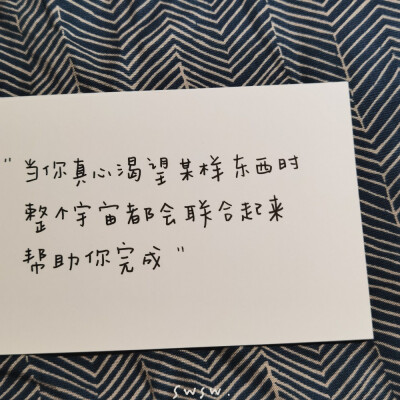 "当你真心渴望某样东西时
整个宇宙都会联合起来
帮助你完成"
swsw.